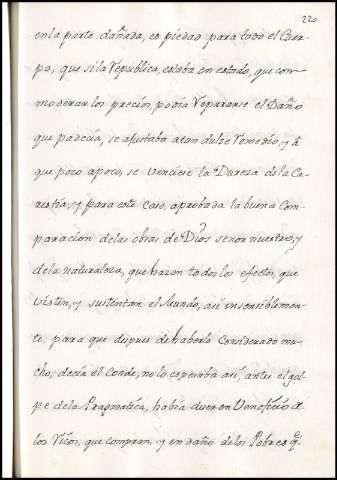 220
en la parte dañada, es piedad para todo el Cuer-
po, que si la Republica, estaba en estado, que con
moderar los precios, podia Repararse el Daño
que padecia, se ajustaba a tan dulze Remedio, y â
que poco apoco, se venciese la Dureza de la Ca-
restia, y para este caso, aprobada la buena Com-
paracion delas obras de Dios señor nuestro, y
dela naturaleza, que hazen todos los efectos, que
visten, y sustentan el Mundo, asi insensiblemen-
te, para que despues de haberlo Considerado mu-
cho, decia el Conde, no lo esperaba asi, antes el gol-
pe dela Pragmatica, habia de ser en Veneficio de
los Ricos, que compran, y en daño delos Pobres q.